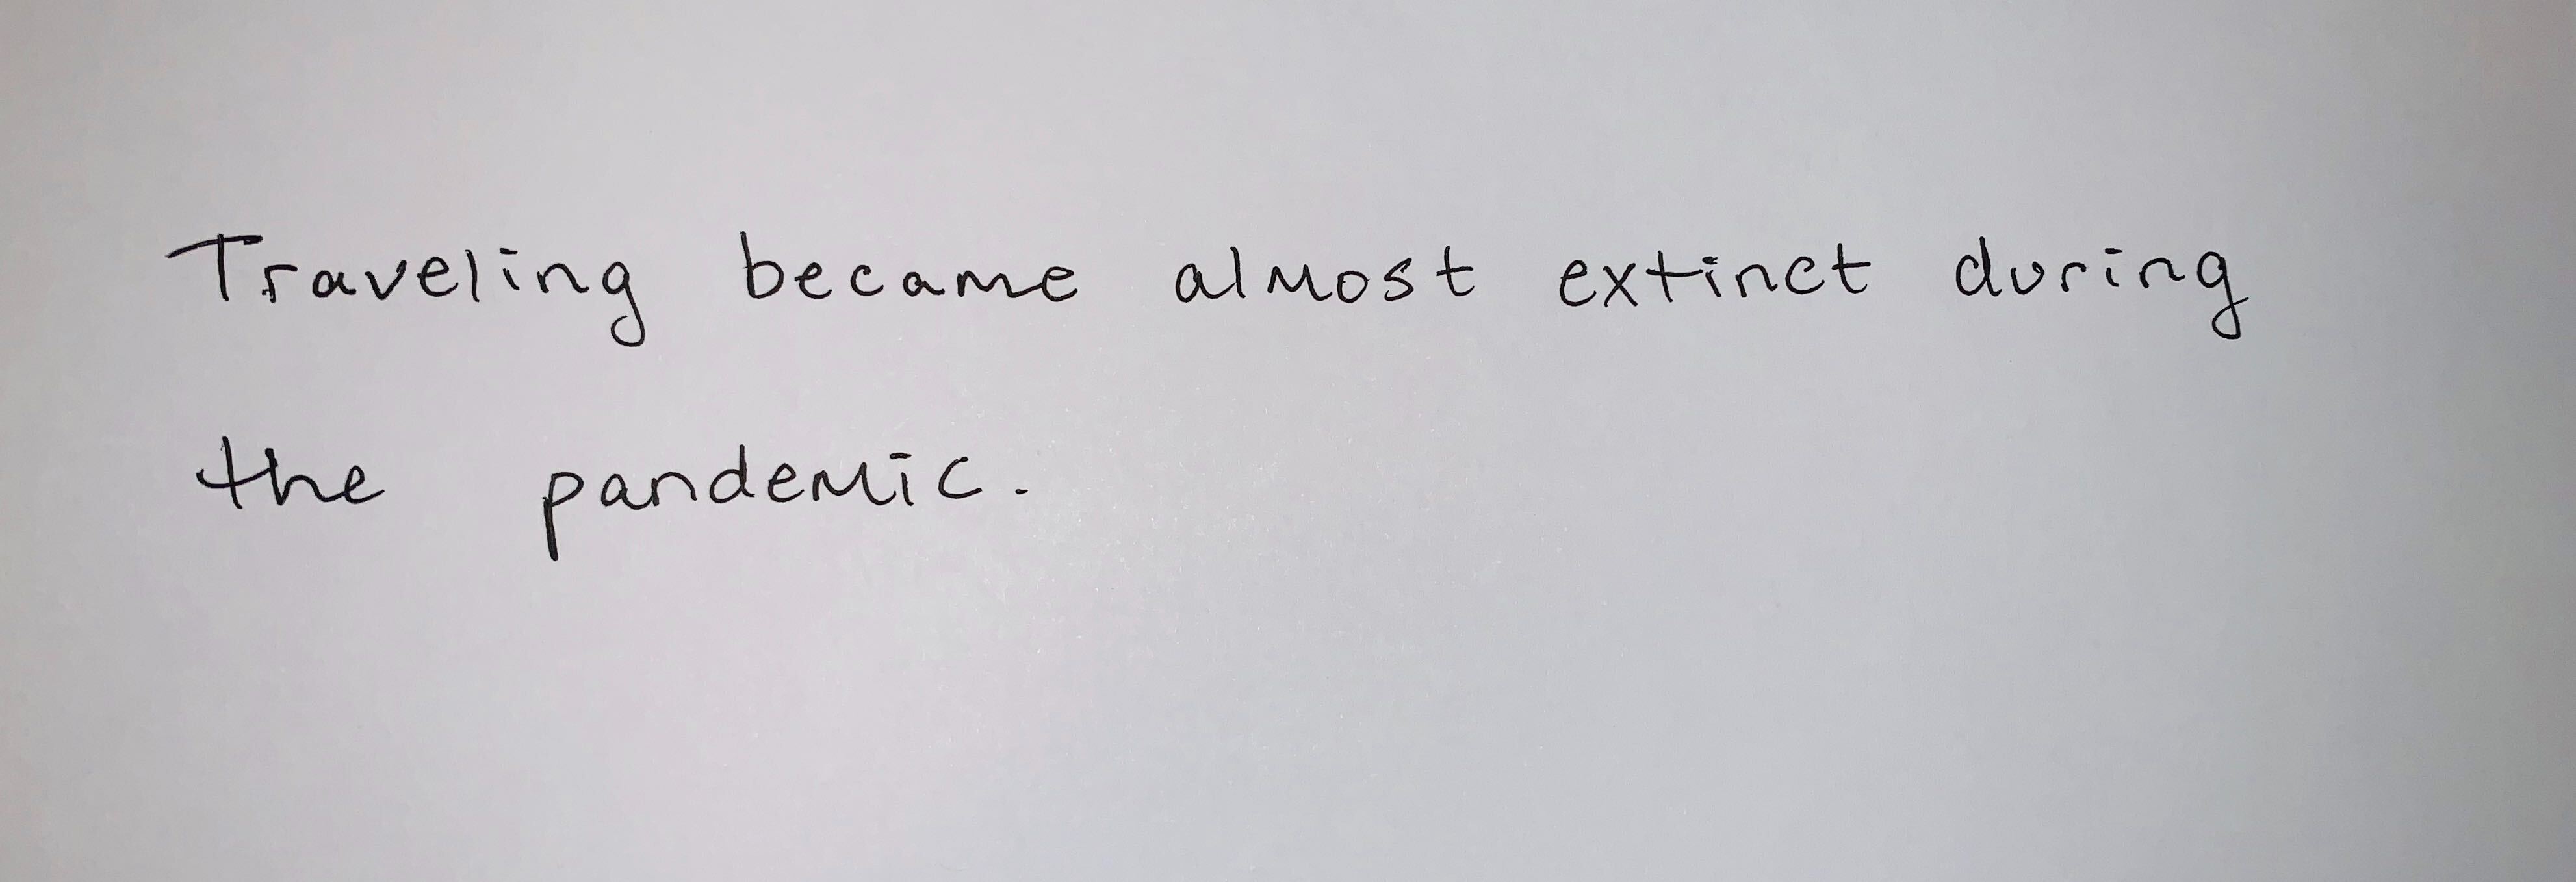 Traveling became almost extinct during
the pandemic.